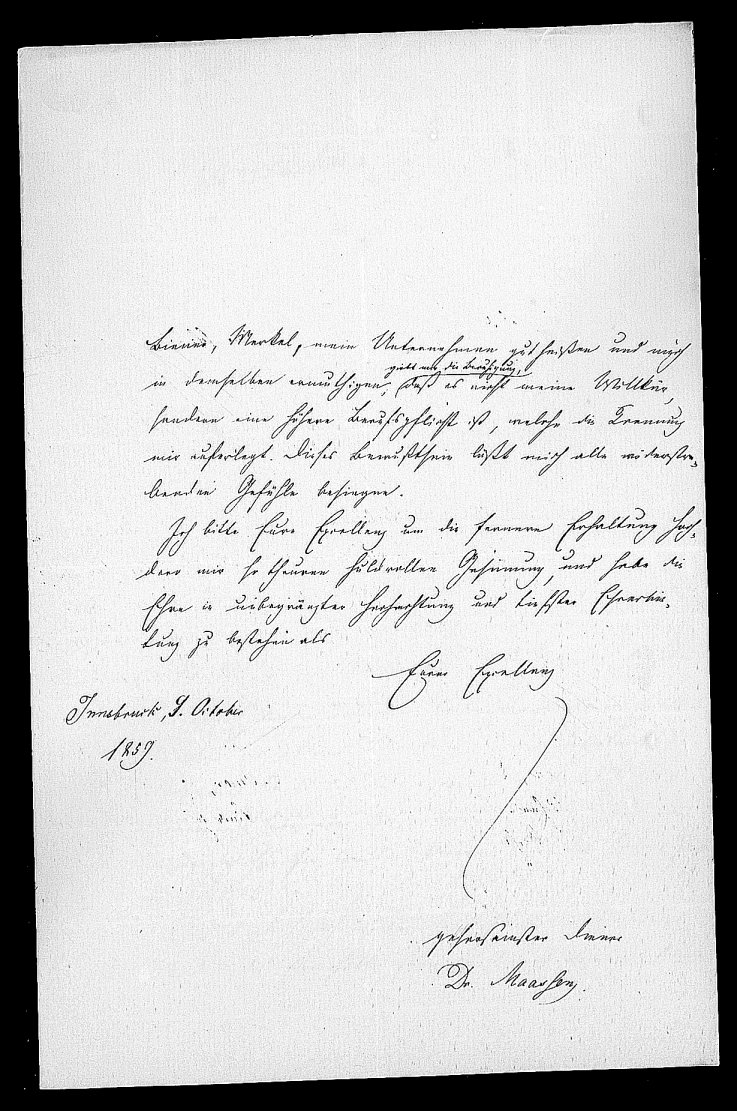 Biener, Merkel, mein Unternehmen gutheißen und mich
in demselben ermuthigen, gibt mir die Beruhigung,
daß es nicht meine Willkür,
sondern eine höhere Berufspflicht ist, welche die Trennung
mir auferlegt. Dieses Bewußtsein läßt mich alle widerstre-
benden Gefühle besiegen.
Ich bitte Eure Excellenz um die fernere Erhaltung Hoch-
dero mir so theuren huldvollen Gesinnung, und habe die
Ehre in unbegränzter Hochachtung und tiefster Ehrerbie-
tung zu bestehen als
Eurer Excellenz
Innsbruck, 9. October
1857.
gehorsamster Diener
Dr. Maassen.